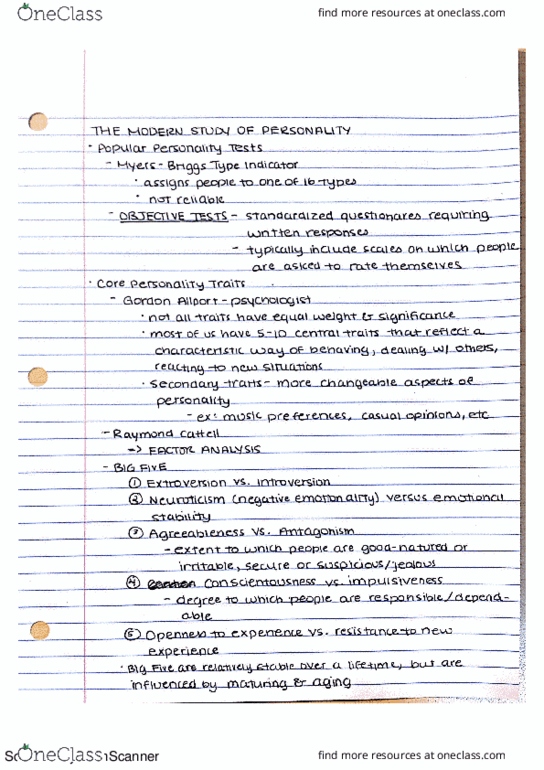 OneClass
find more resources at oneclass.com
THE MODERN STUDY OF PERSONALITY
· Popular Personality Tests
- Myers-Briggs Type Indicator
· assigns people to one of 16 types
· not reliable
- OBJECTIVE TESTS - standardized questionares requiring
written responses
- typically include scales on which people
are asked to rate themselves
· Core Personality Traits
- Gordon Allport - psychologist
· not all traits have equal weight & significance
· most of us have 5-10 central traits that reflect a
characteristic way of behaving, dealing w/ others,
reacting to new situations
· secondary traits - more changeable aspects of
personality
- ex: music preferences, casual opinions, etc
- Raymond Cattell
-> FACTOR ANALYSIS
- BIG FIVE
① Extroversion vs. Introversion
② Neuroticism (negative emotionality) versus emotional
stability
③ Agreeableness vs. Antagonism
- extent to which people are good-natured or
irritable, secure or suspicious/jealous
④ Conscientousness vs impulsiveness
- degree to which people are responsible/depend-
able
⑤ Openness to experience vs. resistance to new
experience
· Big Five are relatively stable over a lifetime, but are
influenced by maturing & aging
OneClass
Scanner
find more resources at oneclass.com